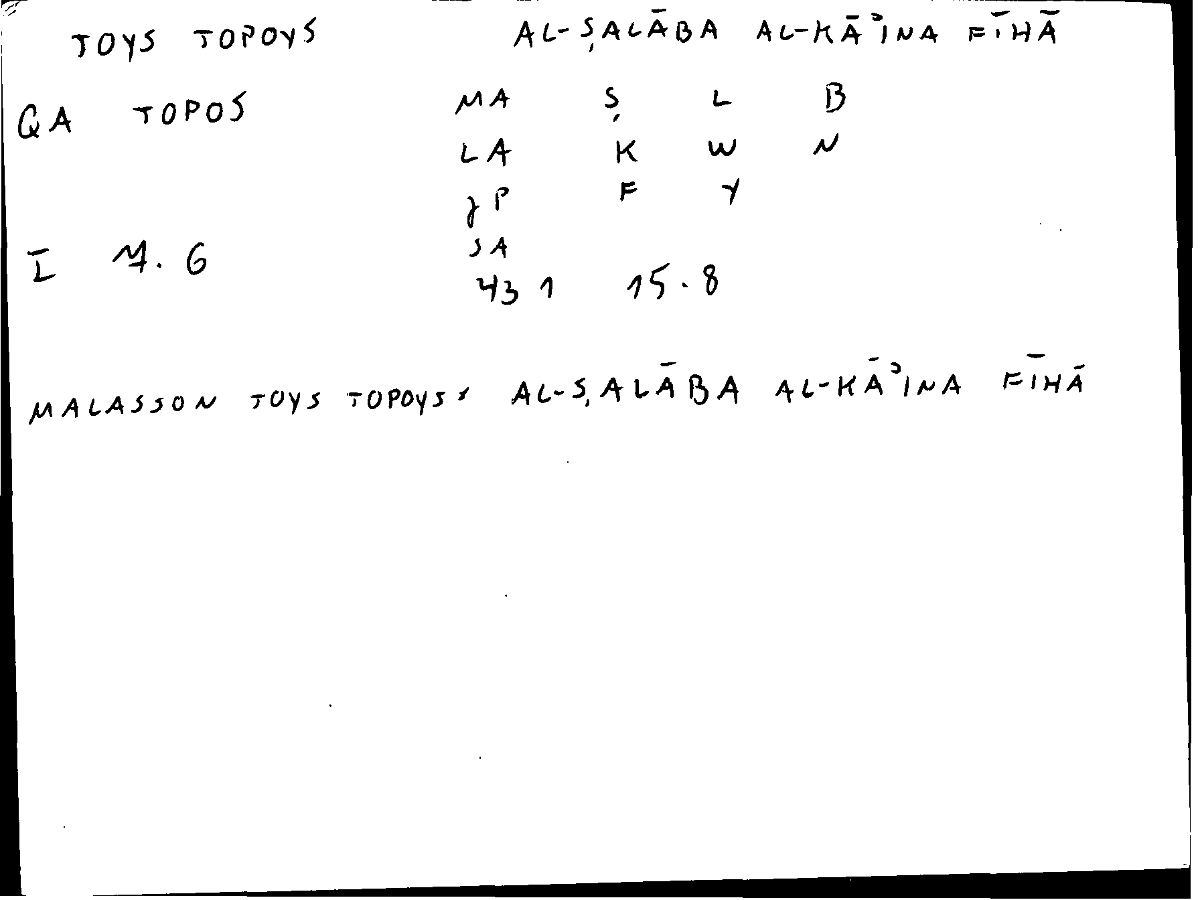 TOYS TOPOYS AL-ṢALĀBA AL-KĀʾINA FĪHĀ
QA TOPOS MA Ṣ L B
LA K W N
γP F Y
I 7.6 SA
431 15.8
MALASSON TOYS TOPOYS: AL-ṢALĀBA AL-KĀʾINA FĪHĀ